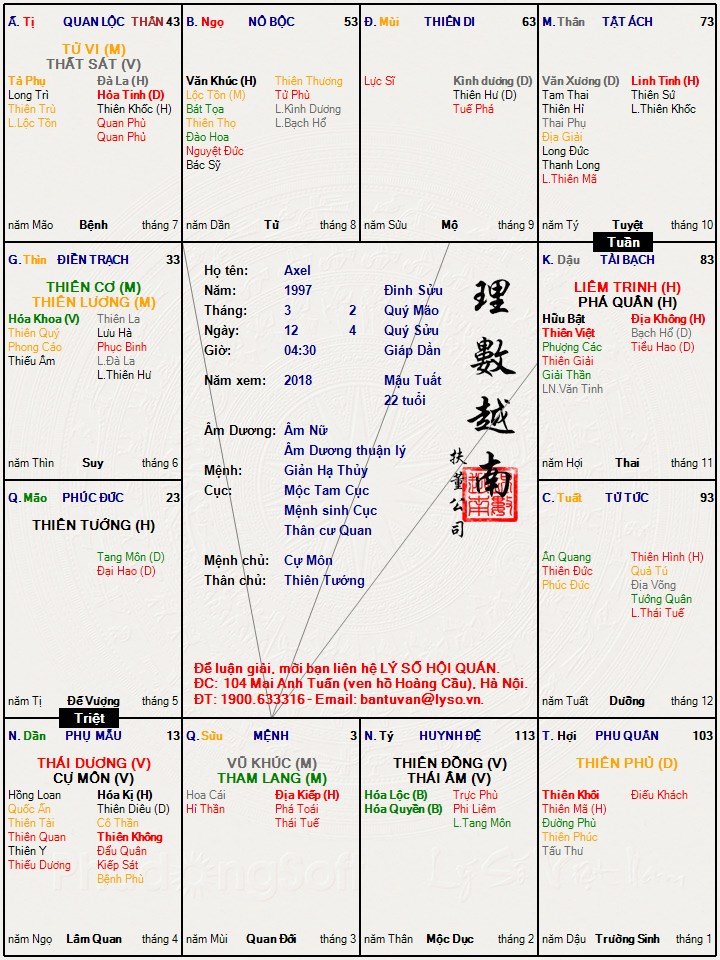 Ã. Tị QUAN LỘC THÂN 43
TỬ VI (M)
THẤT SÁT (V)
Tả Phụ Đà La (H)
Long Trì Hỏa Tinh (D)
Thiên Trù Thiên Khốc (H)
L.Lộc Tồn Quan Phù
Quan Phủ
năm Mão Bệnh tháng 7
B. Ngọ NÔ BỘC 53
Văn Khúc (H) Thiên Thương
Lộc Tồn (M) Tử Phù
Bát Tọa L.Kình Dương
Thiên Thọ L.Bạch Hổ
Đào Hoa
Nguyệt Đức
Bác Sỹ
năm Dần Tử tháng 8
Đ. Mùi THIÊN DI 63
Lực Sĩ Kình dương (D)
Thiên Hư (D)
Tuế Phá
năm Sửu Mộ tháng 9
M. Thân TẬT ÁCH 73
Văn Xương (D) Linh Tinh (H)
Tam Thai Thiên Sứ
Thiên Hỉ L.Thiên Khốc
Thai Phụ
Địa Giải
Long Đức
Thanh Long
L.Thiên Mã
năm Tý Tuyệt tháng 10
Tuần
G. Thìn ĐIỀN TRẠCH 33
THIÊN CƠ (M)
THIÊN LƯƠNG (M)
Hóa Khoa (V) Thiên La
Thiên Quý Lưu Hà
Phong Cáo Phục Binh
Thiếu Âm L.Đà La
L.Thiên Hư
năm Thìn Suy tháng 6
Họ tên: Axel
Năm: 1997 Đinh Sửu
Tháng: 3 2 Quý Mão
Ngày: 12 4 Quý Sửu
Giờ: 04:30 Giáp Dần
Năm xem: 2018 Mậu Tuất
22 tuổi
Âm Dương: Âm Nữ
Âm Dương thuận lý
Mệnh: Giản Hạ Thủy
Cục: Mộc Tam Cục
Mệnh sinh Cục
Thân cư Quan
Mệnh chủ: Cự Môn
Thân chủ: Thiên Tướng
理數越南
扶董公司
Để luận giải, mời bạn liên hệ LÝ SỐ HỘI QUÁN.
ĐC: 104 Mai Anh Tuấn (ven hồ Hoàng Cầu), Hà Nội.
ĐT: 1900.633316 - Email: bantuvan@lyso.vn.
K. Dậu TÀI BẠCH 83
LIÊM TRINH (H)
PHÁ QUÂN (H)
Hữu Bật Địa Không (H)
Thiên Việt Bạch Hổ (D)
Phượng Các Tiểu Hao (D)
Thiên Giải
Giải Thần
LN.Văn Tinh
năm Hợi Thai tháng 11
Q. Mão PHÚC ĐỨC 23
THIÊN TƯỚNG (H)
Tang Môn (D)
Đại Hao (D)
năm Tị Đế Vượng tháng 5
Triệt
C. Tuất TỬ TỨC 93
Ân Quang Thiên Hình (H)
Thiên Đức Quả Tú
Phúc Đức Địa Võng
Tướng Quân
L.Thái Tuế
năm Tuất Dưỡng tháng 12
N. Dần PHỤ MẪU 13
THÁI DƯƠNG (V)
CỰ MÔN (V)
Hồng Loan Hóa Kị (H)
Quốc Ấn Thiên Diêu (D)
Thiên Tài Cô Thần
Thiên Quan Thiên Không
Thiên Y Đẩu Quân
Thiếu Dương Kiếp Sát
Bệnh Phù
năm Ngọ Lâm Quan tháng 4
Q. Sửu MỆNH 3
VŨ KHÚC (M)
THAM LANG (M)
Hoa Cái Địa Kiếp (H)
Hỉ Thần Phá Toái
Thái Tuế
năm Mùi Quan Đới tháng 3
N. Tý HUYNH ĐỆ 113
THIÊN ĐỒNG (V)
THÁI ÂM (V)
Hóa Lộc (B) Trực Phù
Hóa Quyền (B) Phi Liêm
L.Tang Môn
năm Thân Mộc Dục tháng 2
T. Hợi PHU QUÂN 103
THIÊN PHỦ (D)
Thiên Khôi Điếu Khách
Thiên Mã (H)
Đường Phù
Thiên Phúc
Tấu Thư
năm Dậu Trường Sinh tháng 1